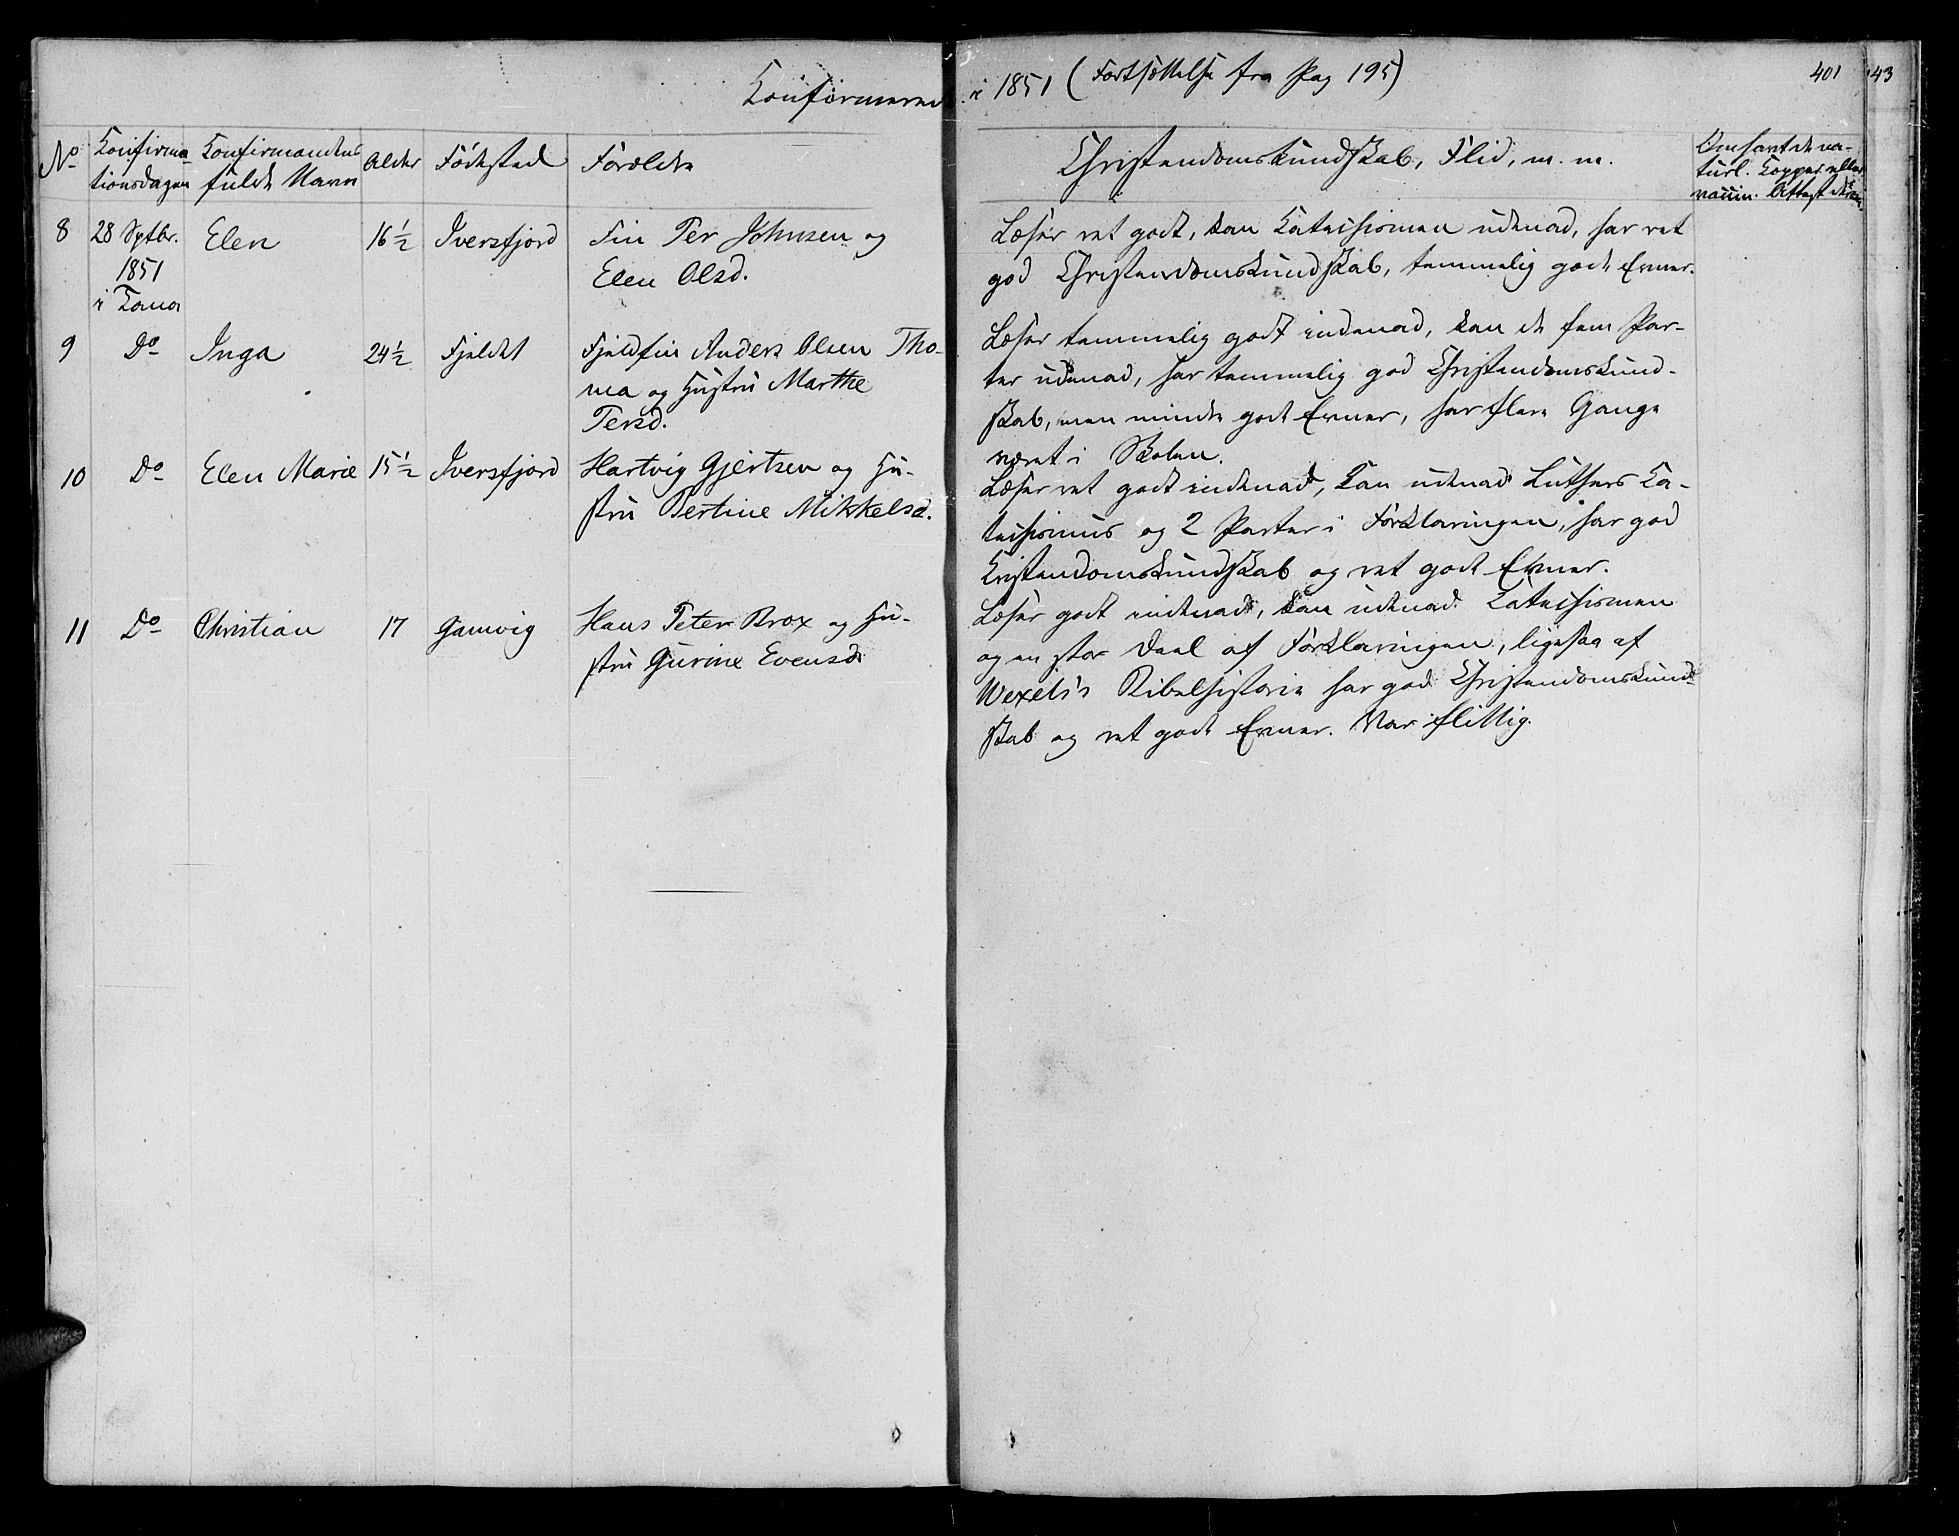 Konfirmerede i 1851 (Fortsættelse fra Pag 195)
401
43
No
Konfirma-
tionsdagen
Konfirmandens
fulde Navn
Alder
Fødested
Forældre
Christendomskundskab, Flid, m. m.
Om havt de na-
turl. Kopper eller
vaccin. Attest derom.
8
28 Sptbr.
1851
i Tana
Elen
16 1/2
Iversfjord
Fin Per Johnsen og
Elen Olsd.
Læser ret godt, kan Katechismen udenad, har ret
god Christendomskundskab, temmelig gode Evner.
9
Do
Inga
24 1/2
Fjeldet
Fjeldfin Anders Olsen Tho-
ma og Hustru Marthe
Persd.
Læser temmelig godt indenad, kan de fem Par-
ter udenad, har temmelig god Christendomskund-
skab, men mindre gode Evner, har flere Gange
været i Skolen.
10
Do
Elen Marie
15 1/2
Iversfjord
Hartvig Gjertsen og Hu-
stru Bertine Mikkelsd.
Læser ret godt indenad, kan udenad Luthers Ka-
techismus og 2 Parter i Forklaringen, har god
Kristendomskundskab og ret gode Evner.
11
Do
Christian
17
Gamvig
Hans Peter Brox og Hu-
stru Gurine Evensd.
Læser godt indenad, kan udenad Katechismen
og en stor Deel af Forklaringen, ligesaa af
Wexels's Bibelhistorie har god Christendomskund-
skab og ret gode Evner. Var flittig.